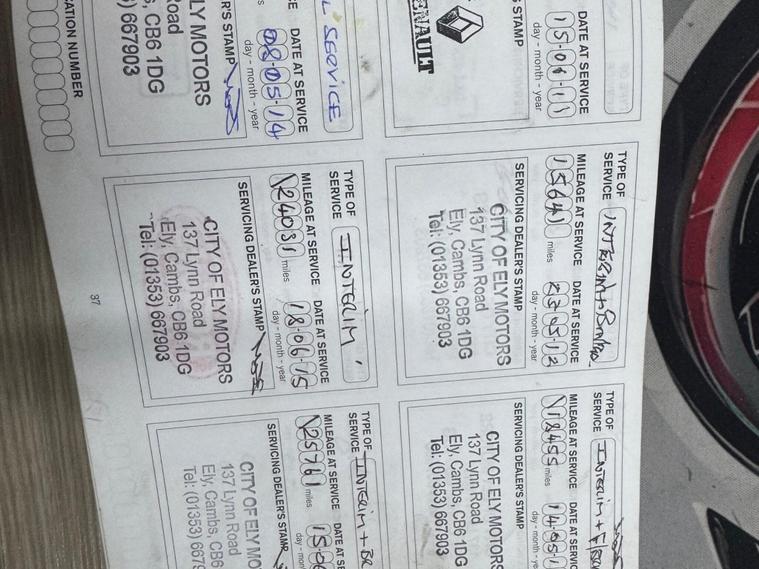 DATE AT SERVICE
15-04-11
day - month - year
S STAMP
RENAULT
TYPE OF
SERVICE
MILEAGE AT SERVICE
15641
miles
DATE AT SERVICE
23-05-12
day - month - year
SERVICING DEALER'S STAMP
CITY OF ELY MOTORS
137 Lynn Road
Ely, Cambs, CB6 1DG
Tel: (01353) 667903
TYPE OF
SERVICE
INTERIM +
MILEAGE AT SERVICE
18455
miles
DATE AT SERVIC
14-05-1
day - month -
SERVICING DEALER'S STAMP
CITY OF ELY MOTORS
137 Lynn Road
Ely, Cambs, CB6 1DG
Tel: (01353) 667903
SERVICE
DATE AT SERVICE
08-05-14
day - month - year
R'S STAMP
ELY MOTORS
Road
s, CB6 1DG
) 667903
TYPE OF
SERVICE
INTERIM
MILEAGE AT SERVICE
24031
miles
DATE AT SERVICE
18-06-15
day - month - year
SERVICING DEALER'S STAMP
CITY OF ELY MOTORS
137 Lynn Road
Ely, Cambs, CB6 1DG
Tel: (01353) 667903
TYPE OF
SERVICE
INTERIM + BR
MILEAGE AT SERVICE
25761
miles
DATE AT SE
15-0
day - mont
SERVICING DEALER'S STAMP
CITY OF ELY MO
137 Lynn Road
Ely, Cambs, CB6
Tel: (01353) 6679
CATION NUMBER
37